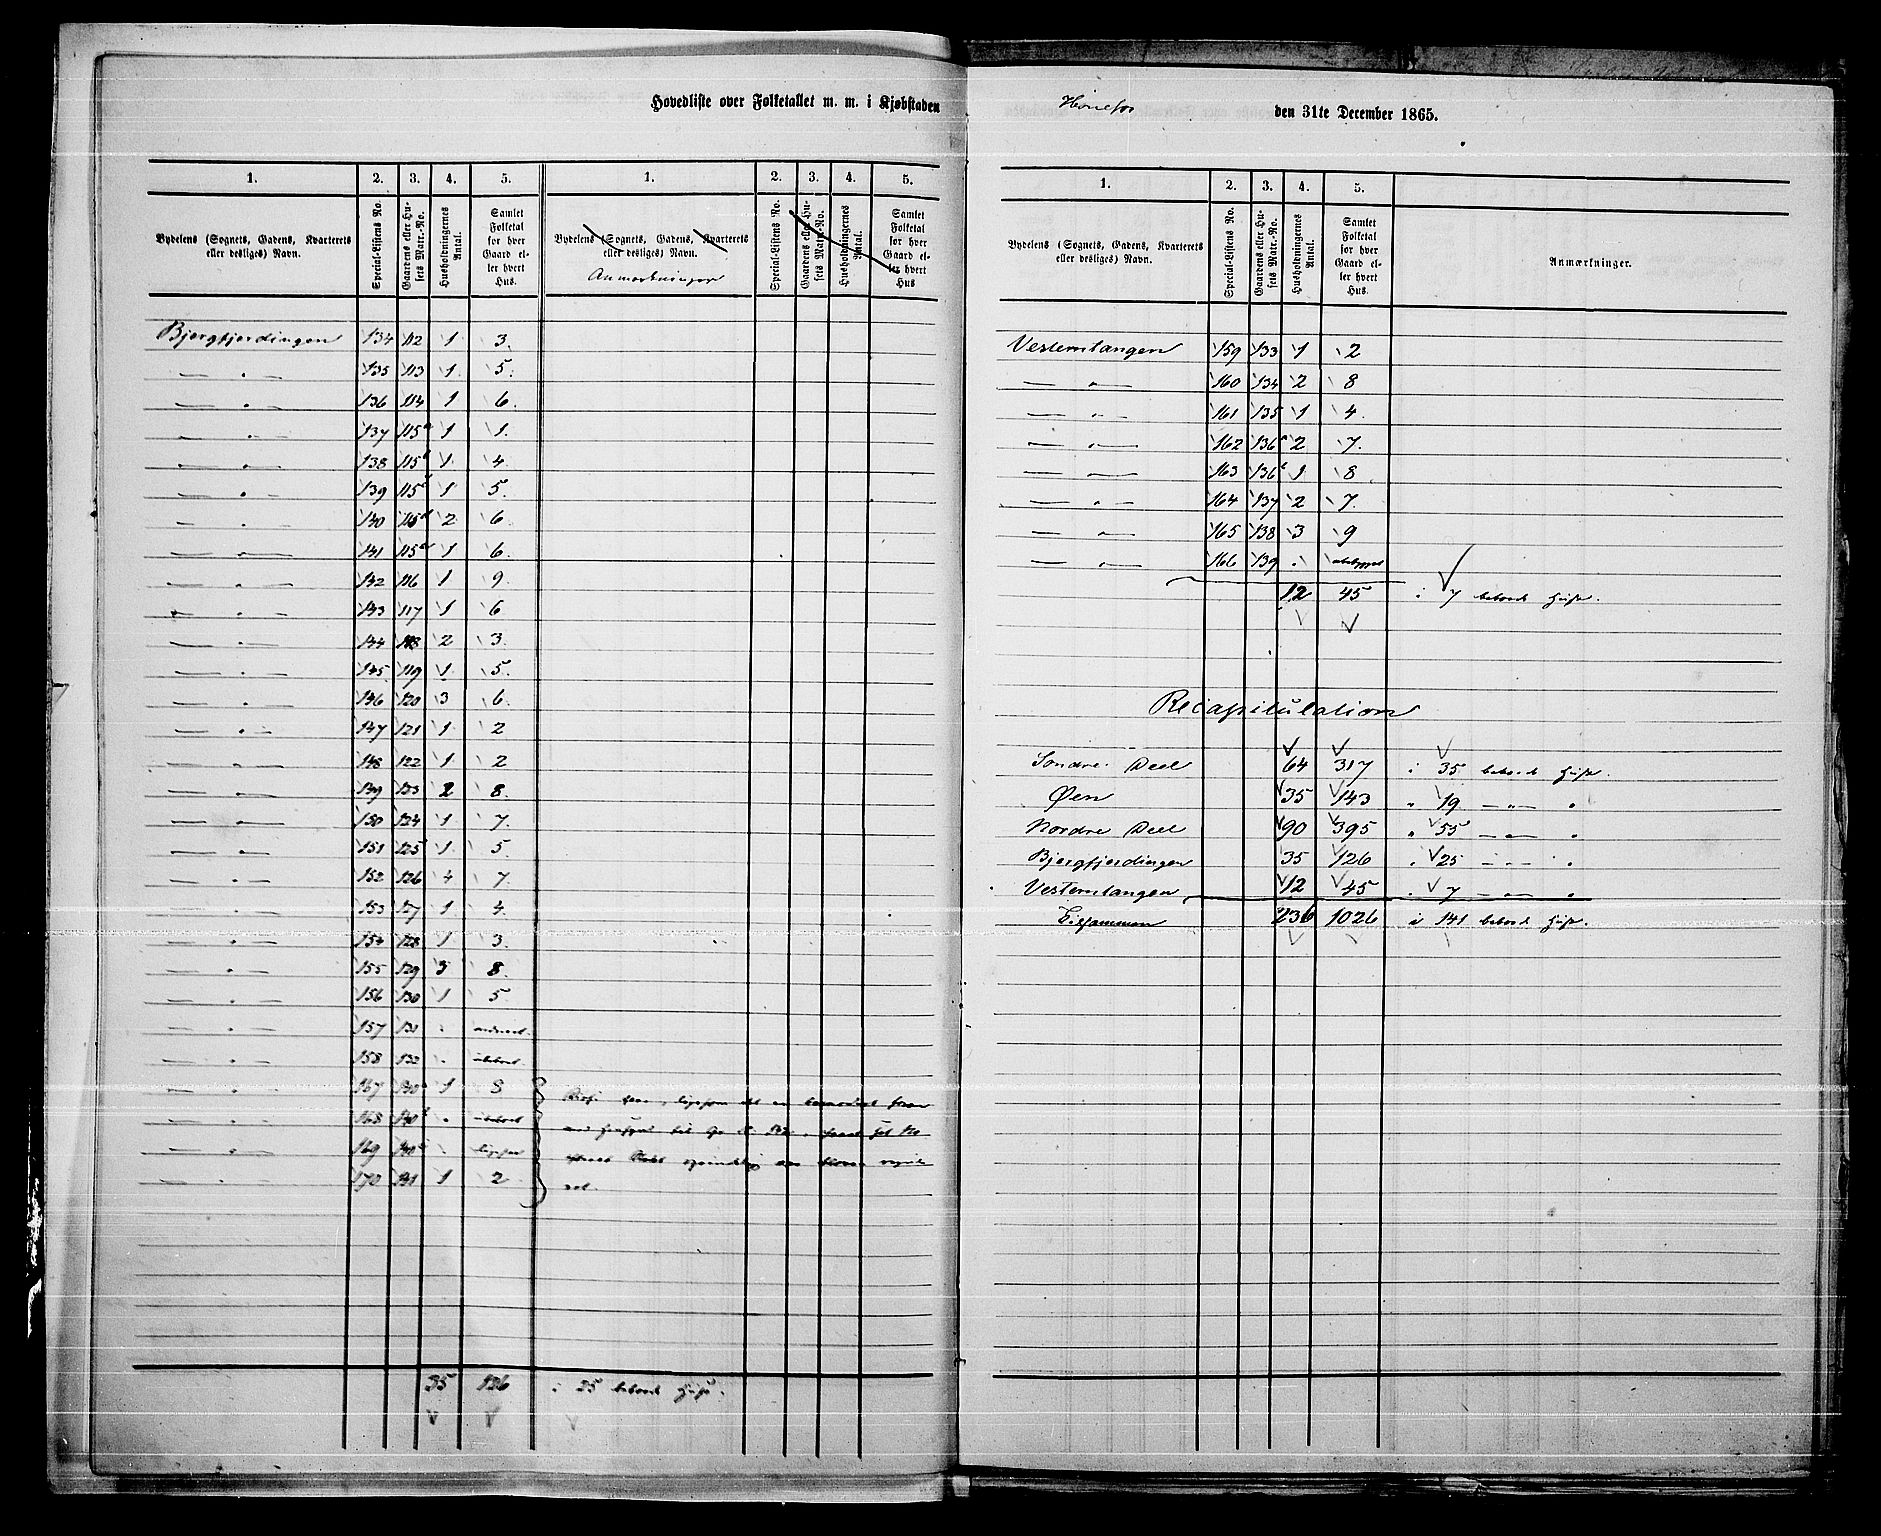 Hovedliste over Folketallet m. m. i Kjøbstaden Hönefos den 31te December 1865.
1. 2. 3. 4. 5. 1. 2. 3. 4. 5.
Bydelens (Sognets, Gadens, Kvarterets eller desliges) Navn. Special-Listens No. Gaardens eller Husets Matr.-No. Husholdningernes Antal. Samlet Folketal for hver Gaard eller hvert Hus. Bydelens (Sognets, Gadens, Kvarterets eller desliges) Navn. Special-Listens No. Gaardens eller Husets Matr.-No. Husholdningernes Antal. Samlet Folketal for hver Gaard eller hvert Hus
Anmærkninger
Bjergfjerdingen 134 112 1 3.
— " — 135 113 1 5.
— " — 136 114 1 6.
— " — 137 115a 1 1.
— " — 138 115b 1 4.
— " — 139 115c 1 5.
— " — 140 115d 2 6.
— " — 141 115e 1 6.
— " — 142 116 1 9.
— " — 143 117 1 6
— " — 144 118 2 3.
— " — 145 119 1 5.
— " — 146 120 3 6.
— " — 147 121 1 2
— " — 148 122 1 2
— " — 149 123 2 8.
— " — 150 124 1 7.
— " — 151 125 1 5.
— " — 152 126 4 7.
— " — 153 127 1 4.
— " — 154 128 1 3.
— " — 155 129 3 8.
— " — 156 130 1 5.
— " — 157 131 "
— " — 158 132 " ubeboet
— " — 167 140a 1 8
— " — 168 140b " ubeboet
— " — 169 140c "
— " — 170 141 1 2
35 126 i 25 beboede Huse.
1. 2. 3. 4. 5.
Bydelens (Sognets, Gadens, Kvarterets eller desliges) Navn. Special-Listens No. Gaardens eller Husets Matr.-No. Husholdningernes Antal. Samlet Folketal for hver Gaard eller hvert Hus. Anmærkninger.
Vesterntangen 159 133 1 2
— " — 160 134 2 8
— " — 161 135 1 4.
— " — 162 136a 2 7.
— " — 163 136b 1 8
— " — 164 137 2 7.
— " — 165 138 3 9
— " — 166 139 "
12 45 i 7 beboede Huse.
Recapitulation
Søndre Deel 64 317 i 35 beboede Huse.
Øen 35 143 " 19 — " — "
Nordre Deel 90 395 " 55 — " — "
Bjergfjerdingen 35 126 " 25 — " — "
Vesterntangen 12 45 " 7 — " — "
Tilsammen 236 1026 i 141 beboede Huse.